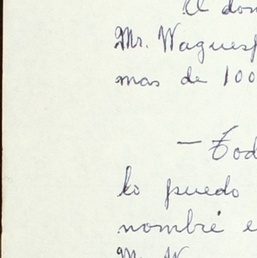 A don
Mr. Wagues
mas de 100
— Tod
lo puedo
nombré e